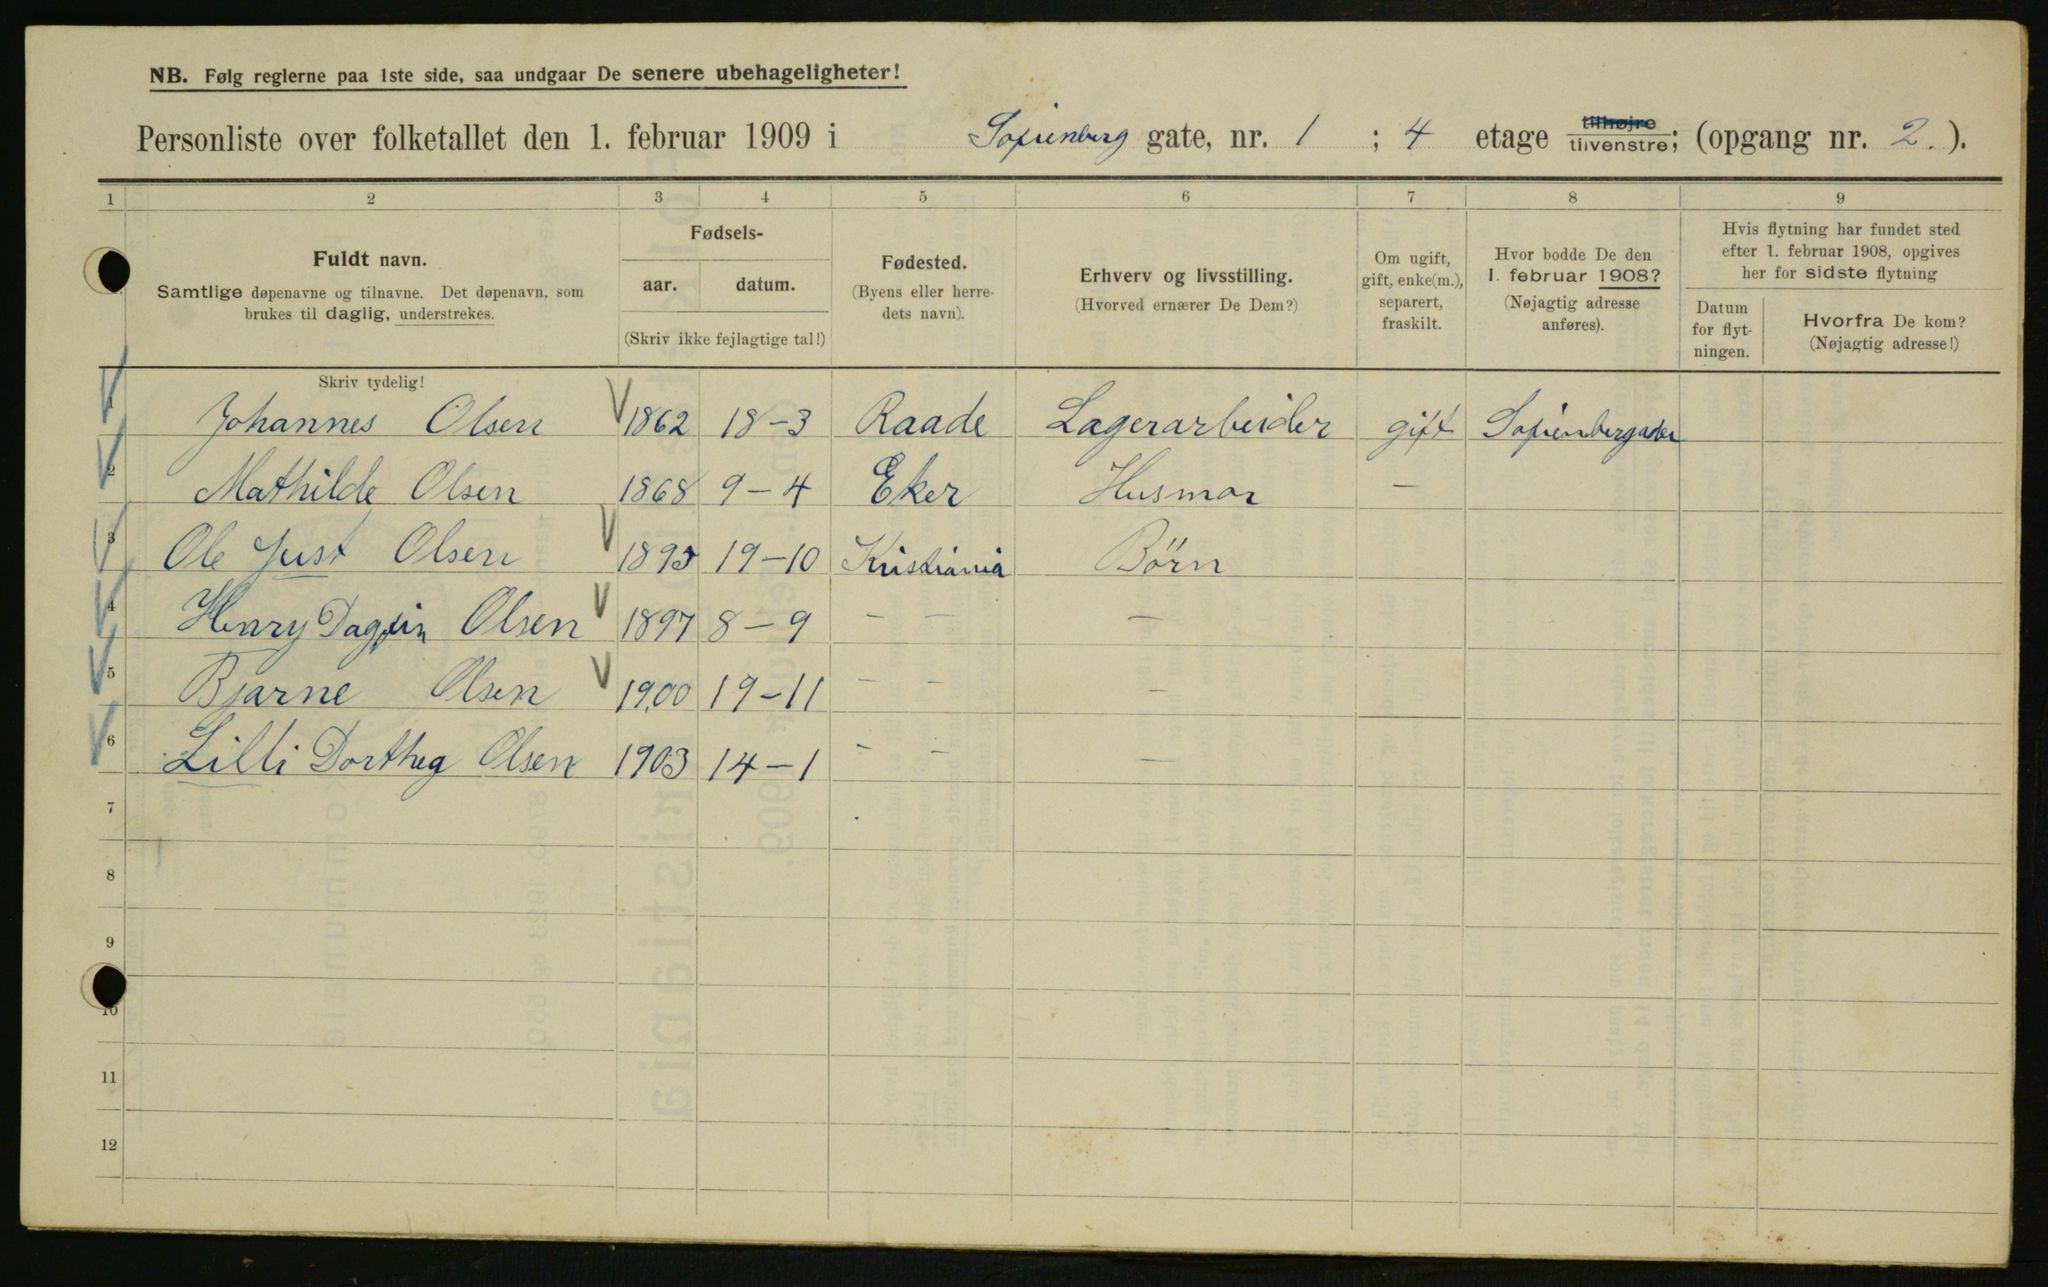 NB. Følg reglerne paa 1ste side, saa undgaar De senere ubehageligheter!
Personliste over folketallet den 1. februar 1909 i Sofienberg gate, nr. 1 ; 4 etage tilhøjre tilvenstre; (opgang nr. 2.).
1 2 3 4 5 6 7 8 9
Fuldt navn.
Samtlige døpenavne og tilnavne. Det døpenavn, som
brukes til daglig, understrekes.
Fødsels-
aar. datum.
(Skriv ikke fejlagtige tal!)
Fødested.
(Byens eller herre-
dets navn).
Erhverv og livsstilling.
(Hvorved ernærer De Dem?)
Om ugift,
gift, enke(m.),
separert,
fraskilt.
Hvor bodde De den
1. februar 1908?
(Nøjagtig adresse
anføres).
Hvis flytning har fundet sted
efter 1. februar 1908, opgives
her for sidste flytning
Datum
for flyt-
ningen.
Hvorfra De kom?
(Nøjagtig adresse!)
Skriv tydelig!
1 Johannes Olsen 1862 18-3 Raade Lagerarbeider gift
2 Mathilde Olsen 1868 9-4 Eker Husmor -
3 Ole Just Olsen 1895 19-10 Kristiania Börn
4 Henry Dagfin Olsen 1897 8-9 - - -
5 Bjarne Olsen 1900 19-11 - - -
6 Lilli Dorthea Olsen 1903 14-1 - - -
7
8
9
10
11
12